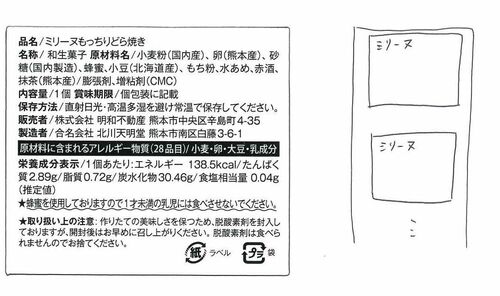 品名/ミリーヌもっちりどら焼き
名称/和生菓子 原材料名/小麦粉(国内産)、卵(熊本産)、砂
糖(国内製造)、蜂蜜、小豆(北海道産)、もち粉、水あめ、赤酒、
抹茶(熊本産)/膨張剤、増粘剤(CMC)
内容量/1個 賞味期限/個包装に記載
保存方法/直射日光・高温多湿を避け常温で保存してください。
販売者/株式会社 明和不動産 熊本市中央区辛島町4-35
製造者/合名会社 北川天明堂 熊本市南区白藤3-6-1
原材料に含まれるアレルギー物質(28品目)/小麦・卵・大豆・乳成分
栄養成分表示/1個あたり:エネルギー 138.5kcal/たんぱく
質2.89g/脂質0.72g/炭水化物30.46g/食塩相当量0.04g
(推定値)
★蜂蜜を使用しておりますので1才未満の乳児には食べさせないでください。
★取り扱い上の注意: 作りたての美味しさを保つため、脱酸素剤を封入し
ておりますが、開封後はお早めに召し上がりください。脱酸素剤は食べら
れませんのでお捨てください。
紙 ラベル プラ 袋
ミリーヌ
ミリーヌ